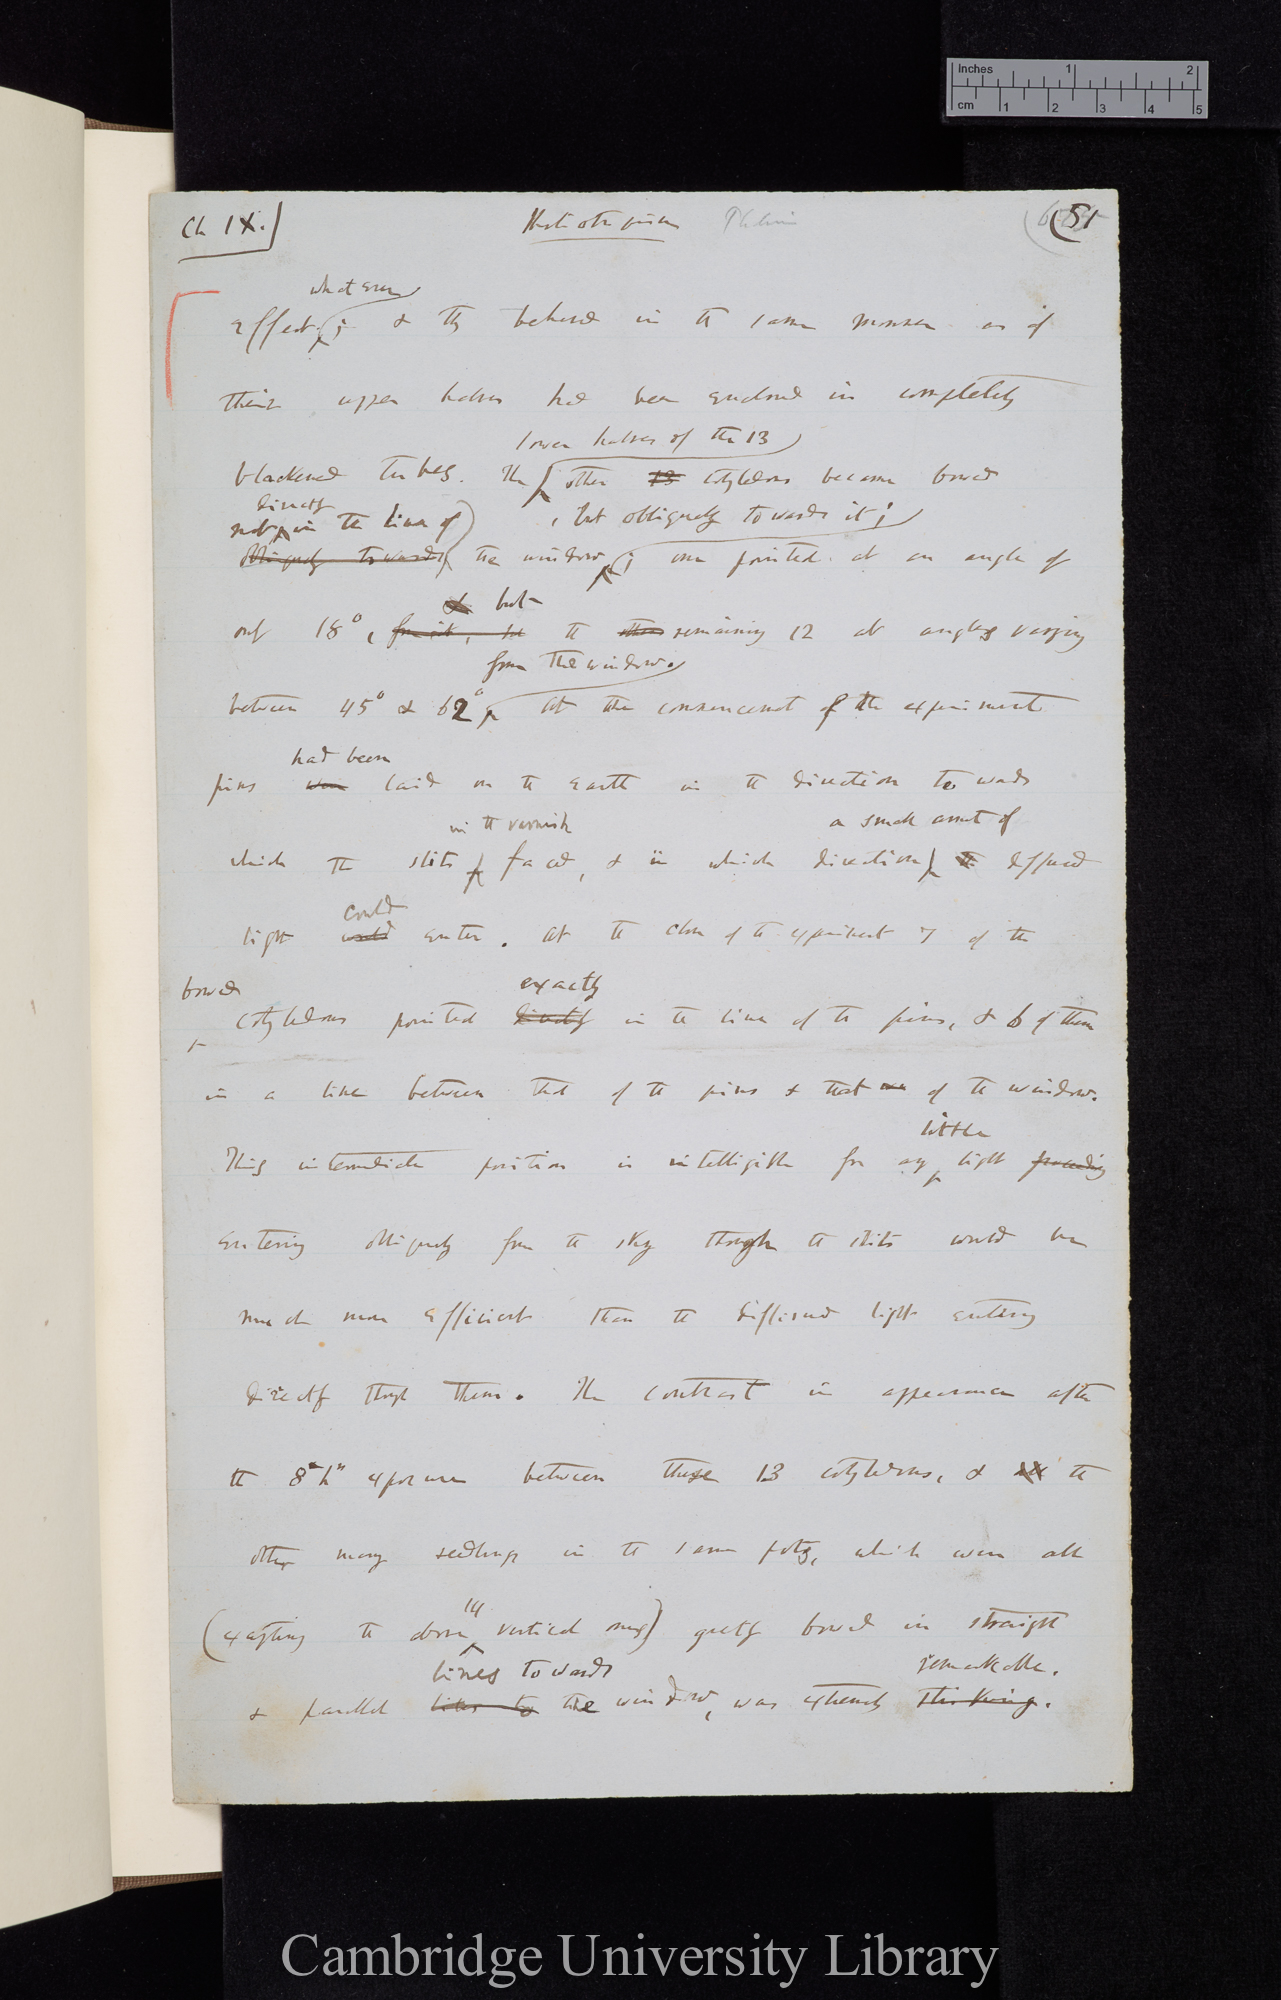 Inches 1 2
cm 1 2 3 4 5
Ch IX.
Heliotropism Phalaris
51
whatever
effect; & they behaved in the same manner as if
their upper halves had been enclosed in completely
lower halves of the 13
blackened tubes. The other 13 cotyledons became bowed
directly
not in the line of , but obliquely towards it;
obliquely towards the window; one pointed at an angle of
& but
only 18°, from it, the remaining 12 at angles varying
from the window.
between 45° & 62°. At the commencement of the experiment
had been
pins were laid on the earth in the direction towards
in the varnish a small amount of
which the slits faced, & in which direction the diffused
could
light would enter. At the close of the experiment 7 of the
bowed exactly
cotyledons pointed directly in the line of the pins, & 6 of them
in a line between that of the pins & that of the window.
little
This intermediate position is intelligible for any light proceeding
entering obliquely from the sky through the slits would be
much more efficient than the diffused light entering
directly through them. The contrast in appearance after
the 8 h exposure between these 13 cotyledons, & the
other many seedlings in the same pots, which were all
14
(excepting the above vertical ones) greatly bowed in straight
lines towards remarkable.
& parallel lines to the window, was extremely striking.
Cambridge University Library